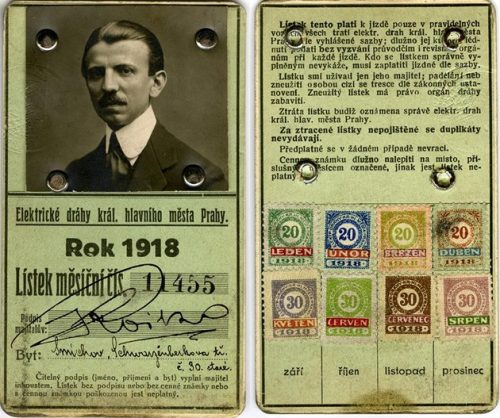 Elektrické dráhy král. hlavního města Prahy.
Rok 1918
Lístek měsíční čís. 11455
Podpis
majitelův:
Byt: Smíchov, Schwarzenberkova tř.
č. 30. staré.
Čitelný podpis (jméno, příjmení a byt) vyplní majitel
inkoustem. Lístek bez podpisu nebo bez cenné známky nebo
s cennou známkou poškozenou jest neplatný.
Lístek tento platí k jízdě pouze v pravidelných
vozech všech tratí elektr. drah král. hlav. města
Prahy dle vyhlášené sazby; dlužno jej ku
pouti bez vyzvání průvodčím i revisním orgá-
nům při každé jízdě. Kdo se lístkem správně vy-
plněným nevykáže, musí zaplatiti jízdné dle sazby.
Lístku smí užívati jen jeho majitel; padělání neb
zneužití osobou cizí se tresce dle zákonných usta-
novení. Zneužitý lístek má právo orgán dráhy
zabaviti.
Ztráta lístku budiž oznámena správě elektr. drah
král. hlav. města Prahy.
Za ztracené lístky nepojištěné se duplikáty
nevydávají.
Předplatné se v žádném případě nevrací.
Cennou známku dlužno nalepiti na místo, pří-
slušným měsícem označené, jinak jest lístek ne-
platný.
20 20 20 20
LEDEN ÚNOR BŘEZEN DUBEN
1918 1918 1918 1918
30 30 30 30
KVĚTEN ČERVEN ČERVENEC SRPEN
1918 1918 1918 1918
září říjen listopad prosinec